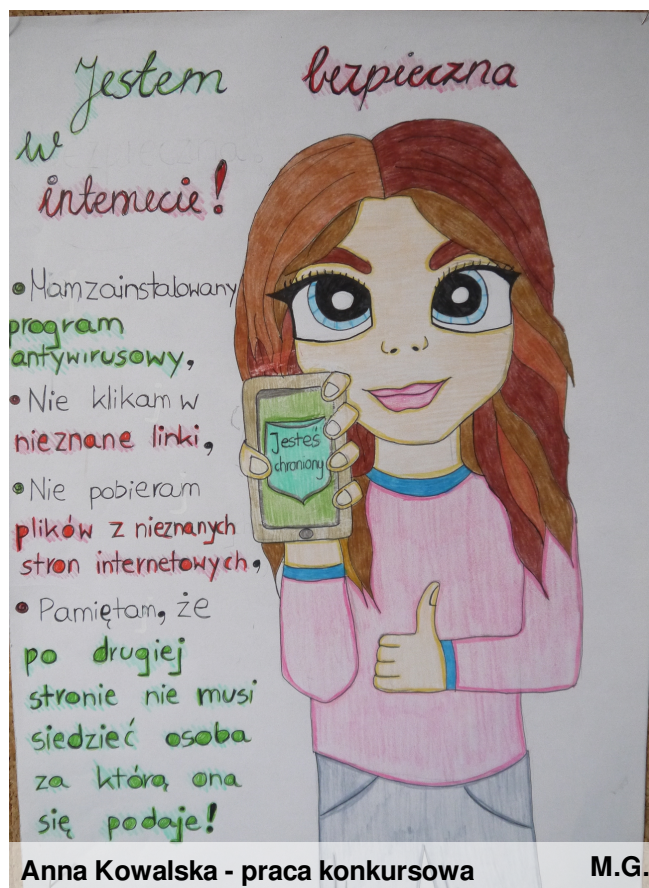 Jestem bezpieczna
w
internecie!
• Mam zainstalowany
program
antywirusowy,
• Nie klikam w
nieznane linki,
• Nie pobieram
plików z nieznanych
stron internetowych,
• Pamiętam, że
po drugiej
stronie nie musi
siedzieć osoba
za którą ona
się podaje!
Jesteś
chroniony
Anna Kowalska - praca konkursowa
M.G.